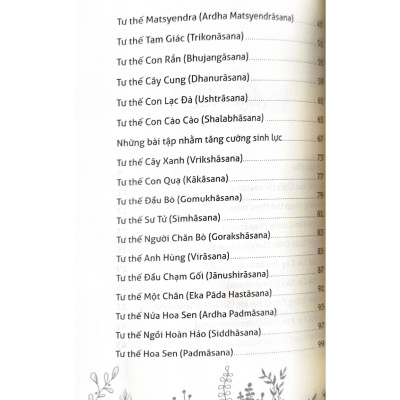 Tư thế Matsyendra (Ardha Matsyendrāsana) 49
Tư thế Tam Giác (Trikonāsana) 51
Tư thế Con Rắn (Bhujangāsana) 55
Tư thế Cây Cung (Dhanurāsana) 59
Tư thế Con Lạc Đà (Ushtrāsana) 61
Tư thế Con Cào Cào (Shalabhāsana) 63
Những bài tập nhằm tăng cường sinh lực 67
Tư thế Cây Xanh (Vrikshāsana) 73
Tư thế Con Quạ (Kākāsana) 77
Tư thế Đầu Bò (Gomukhāsana) 79
Tư thế Sư Tử (Simhāsana) 81
Tư thế Người Chăn Bò (Gorakshāsana) 83
Tư thế Anh Hùng (Virāsana) 85
Tư thế Đầu Chạm Gối (Jānushirāsana) 87
Tư thế Một Chân (Eka Pāda Hastāsana) 91
Tư thế Nửa Hoa Sen (Ardha Padmāsana) 93
Tư thế Ngồi Hoàn Hảo (Siddhāsana) 97
Tư thế Hoa Sen (Padmāsana) 99